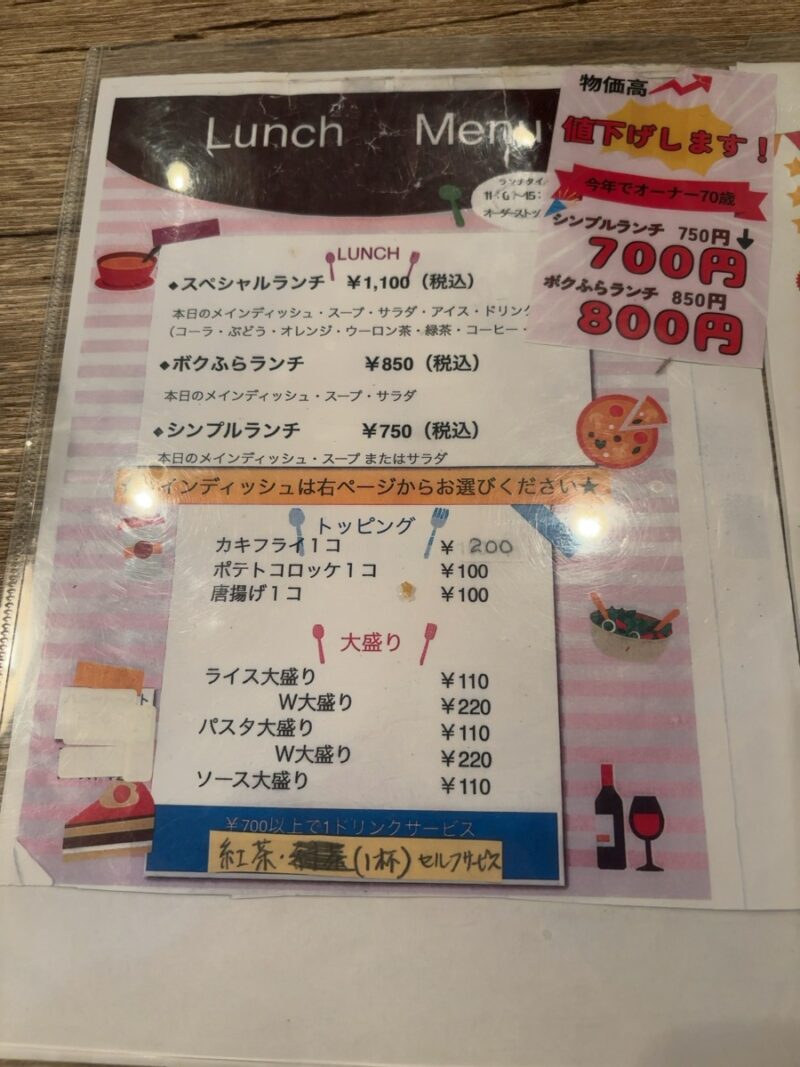 Lunch Menu
物価高
値下げします！
今年でオーナー70歳
シンプルランチ 750円
700円
ボクふらランチ 850円
800円
LUNCH
◆スペシャルランチ ¥1,100（税込）
本日のメインディッシュ・スープ・サラダ・アイス・ドリンク
（コーラ・ぶどう・オレンジ・ウーロン茶・緑茶・コーヒー・
◆ボクふらランチ ¥850（税込）
本日のメインディッシュ・スープ・サラダ
◆シンプルランチ ¥750（税込）
本日のメインディッシュ・スープ またはサラダ
インディッシュは右ページからお選びください★
トッピング
カキフライ1コ ¥ 200
ポテトコロッケ1コ ¥100
唐揚げ1コ ¥100
大盛り
ライス大盛り ¥110
W大盛り ¥220
パスタ大盛り ¥110
W大盛り ¥220
ソース大盛り ¥110
¥700以上で1ドリンクサービス
紅茶・(1杯) セルフサービス